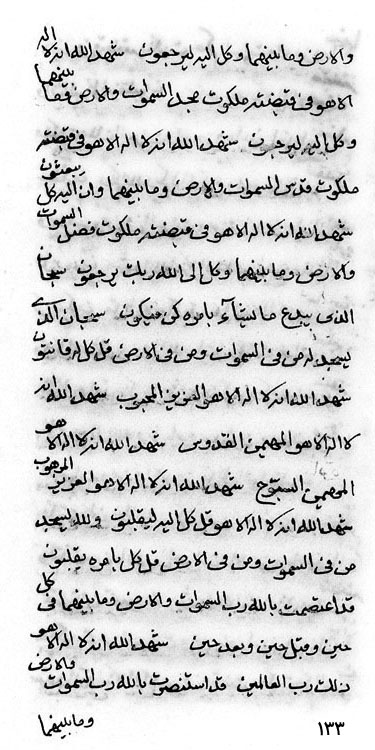 والارض وما بينهما وكل اليه ليرجعون شهد الله انه لا اله
الا هو في قبضته ملكوت مجد السموات والارض وما بينهما
وكل اليه ليرجعون شهد الله انه لا اله الا هو في قبضته
ملكوت قدس السموات والارض وما بينهما وان اليه كل يبعثون
شهد الله انه لا اله الا هو في قبضته ملكوت فضل السموات
والارض وما بينهما وكل الى الله ربك يرجعون سبحان
الذي يبدع ما يشاء بامره كن فيكون سبحان الذي
يسجد له من في السموات ومن في الارض قل كل له قانتون
شهد الله انه لا اله الا هو العزيز المحبوب شهد الله انه
لا اله الا هو المهيمن القدوس شهد الله انه لا اله الا هو
المهيمن السبوح شهد الله انه لا اله الا هو العزيز الموهوب
شهد الله انه لا اله الا هو قل كل اليه ليقلبون ولله يسجد
من في السموات ومن في الارض قل كل بامره يقلبون
قد اعتصمت بالله رب السموات والارض وما بينهما في كل
حين وقبل حين وبعد حين شهد الله انه لا اله الا هو
ذلك رب العالمين قد استنصرت بالله رب السموات والارض
وما بينهما
١٣٣